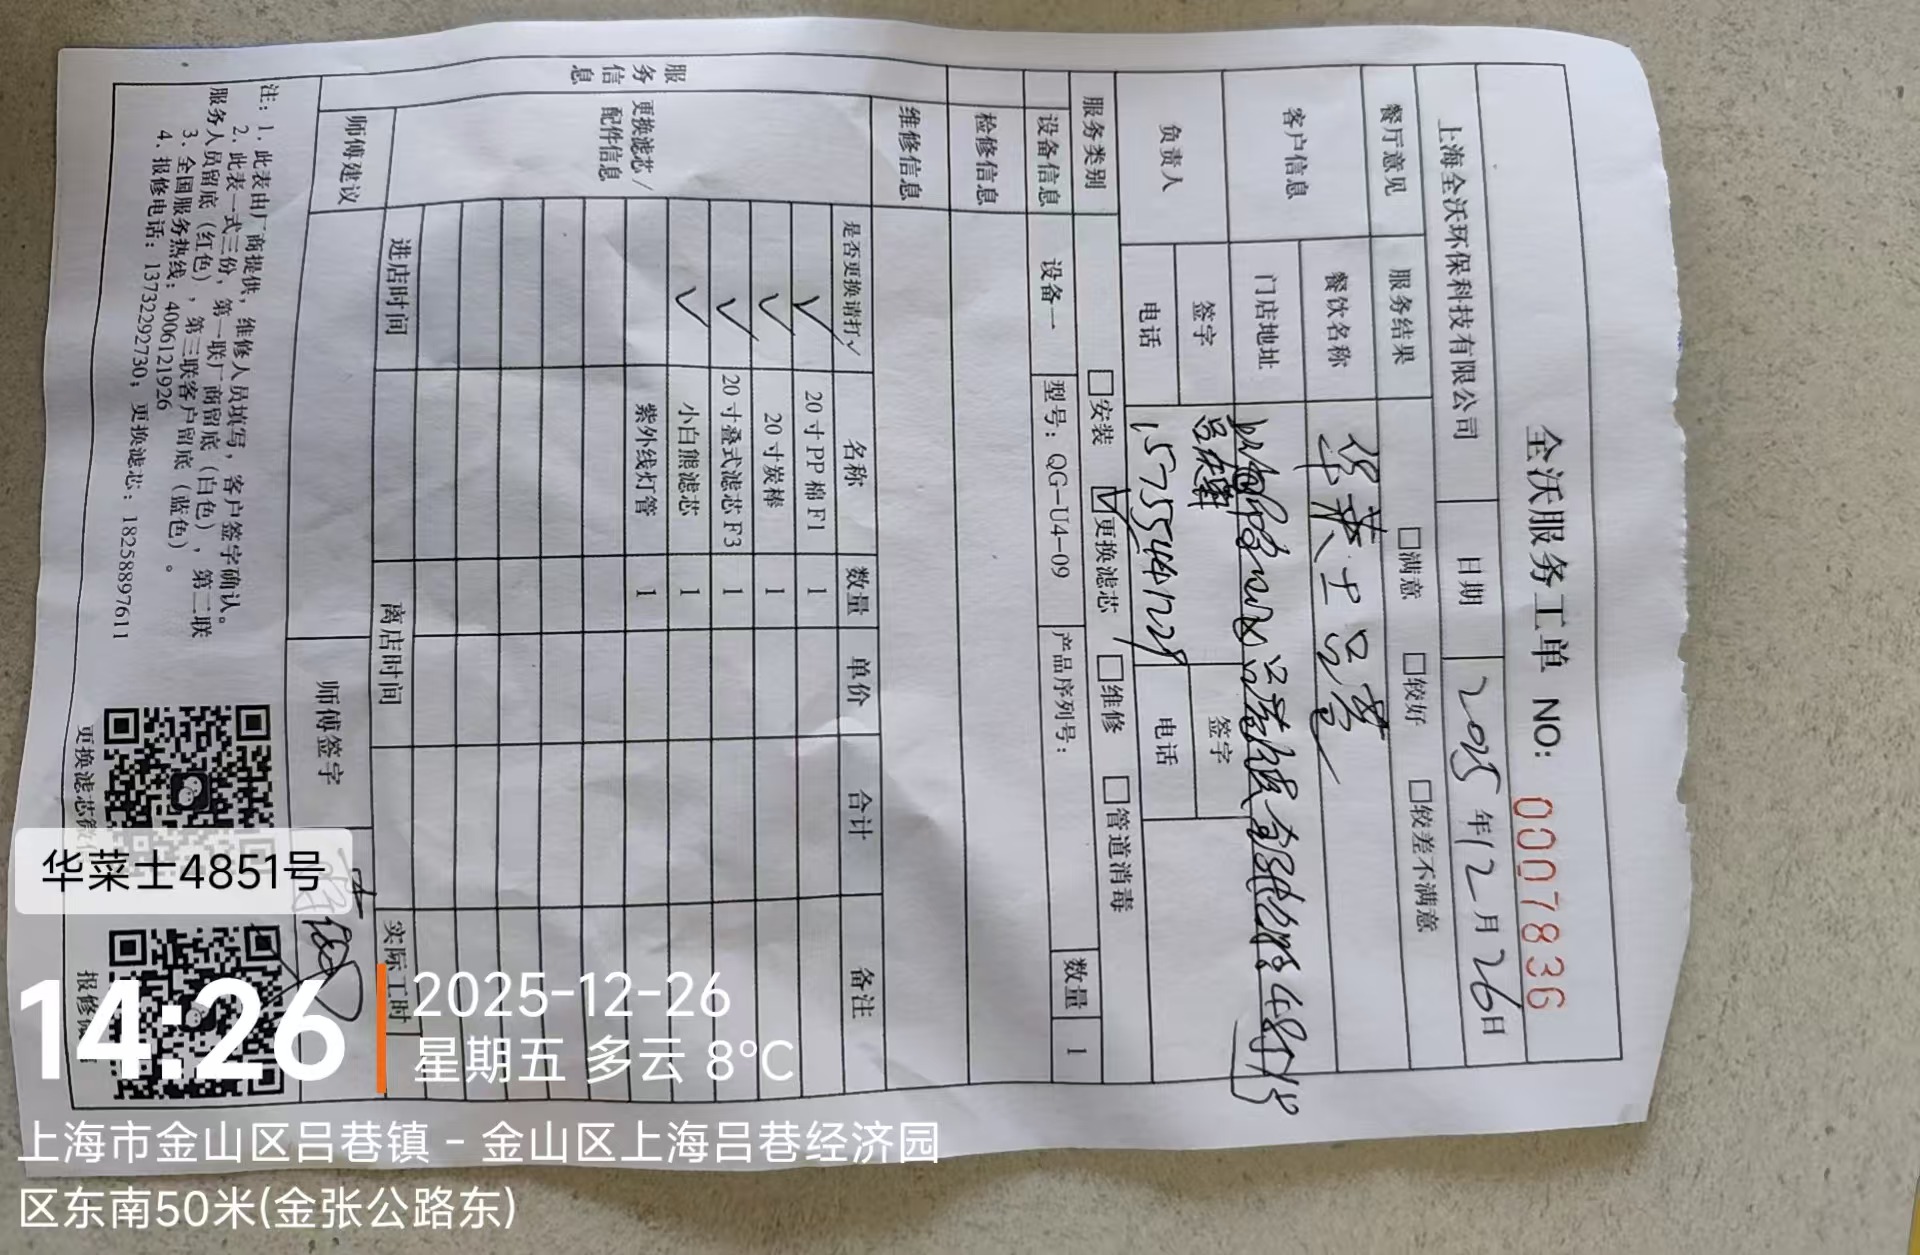 全沃服务工单 NO: 00078836
上海全沃环保科技有限公司 日期 2025年12月26日
餐厅意见 服务结果 □满意 □较好 □较差不满意
客户信息 餐饮名称 华莱士吕巷
门店地址
负责人 签字 签字
电话 15755441228 电话
服务类别 □安装 ☑更换滤芯 □维修 □管道消毒
设备信息 设备一 型号:QG-U4-09 产品序列号: 数量 1
检修信息
维修信息
服务信息
更换滤芯/配件信息
是否更换请打√ 名称 数量 单价 合计 备注
√ 20寸PP棉F1 1
√ 20寸炭棒 1
√ 20寸叠式滤芯F3 1
√ 小白熊滤芯 1
紫外线灯管 1
进店时间 离店时间 实际工时
师傅建议 师傅签字
注:1.此表由厂商提供,维修人员填写,客户签字确认。
2.此表一式三份,第一联厂商留底(白色),第二联
服务人员留底(红色),第三联客户留底(蓝色)。
3.全国服务热线:4006121926
4.报修电话:13732292730;更换滤芯:18258897611
更换滤芯微信
报修微
华菜士4851号
14:26
2025-12-26
星期五 多云 8℃
上海市金山区吕巷镇 - 金山区上海吕巷经济园
区东南50米(金张公路东)